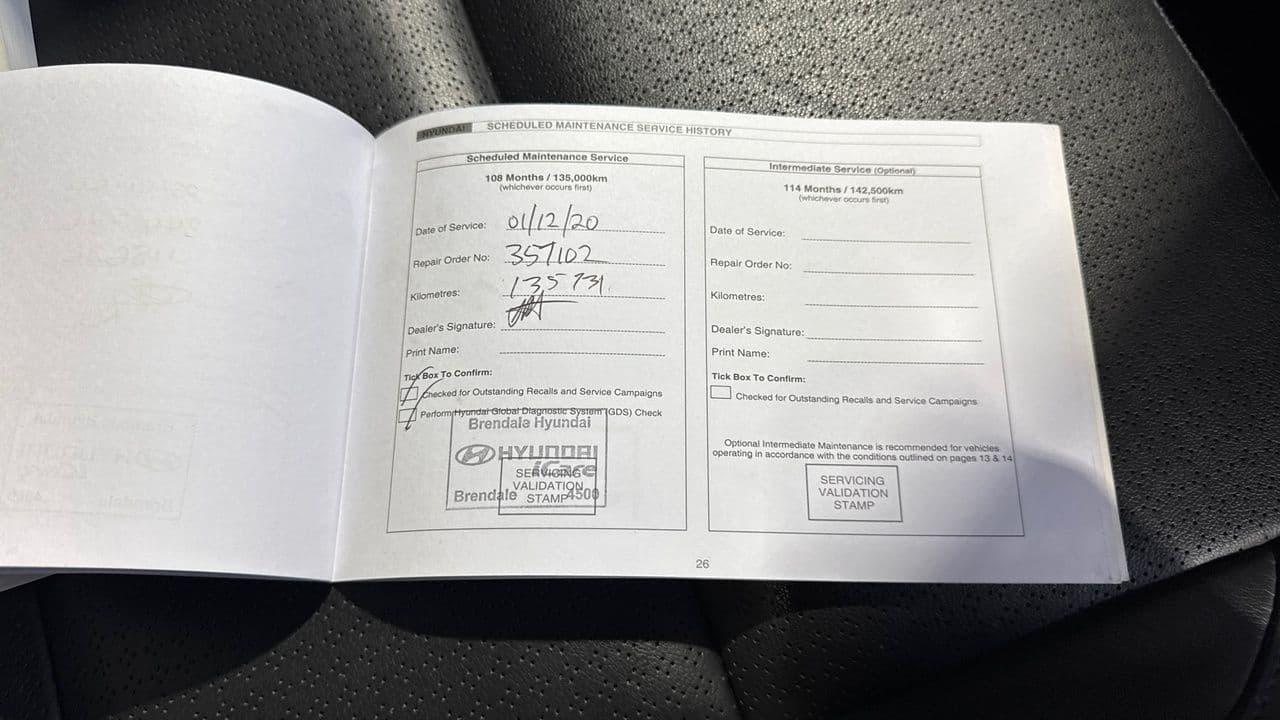 HYUNDAI SCHEDULED MAINTENANCE SERVICE HISTORY
Scheduled Maintenance Service
108 Months / 135,000km
(whichever occurs first)
Date of Service: 01/12/20
Repair Order No: 357102
Kilometres: 135 731
Dealer's Signature:
Print Name:
Tick Box To Confirm:
Checked for Outstanding Recalls and Service Campaigns
Perform Hyundai Global Diagnostic System (GDS) Check
Brendale Hyundai
HYUNDAI
iCare
Brendale 4500
SERVICING
VALIDATION
STAMP
Intermediate Service (Optional)
114 Months / 142,500km
(whichever occurs first)
Date of Service:
Repair Order No:
Kilometres:
Dealer's Signature:
Print Name:
Tick Box To Confirm:
Checked for Outstanding Recalls and Service Campaigns
Optional Intermediate Maintenance is recommended for vehicles
operating in accordance with the conditions outlined on pages 13 & 14
SERVICING
VALIDATION
STAMP
26